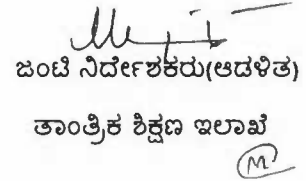 ಜಂಟಿ ನಿರ್ದೇಶಕರು(ಆಡಳಿತ)
ತಾಂತ್ರಿಕ ಶಿಕ್ಷಣ ಇಲಾಖೆ
M